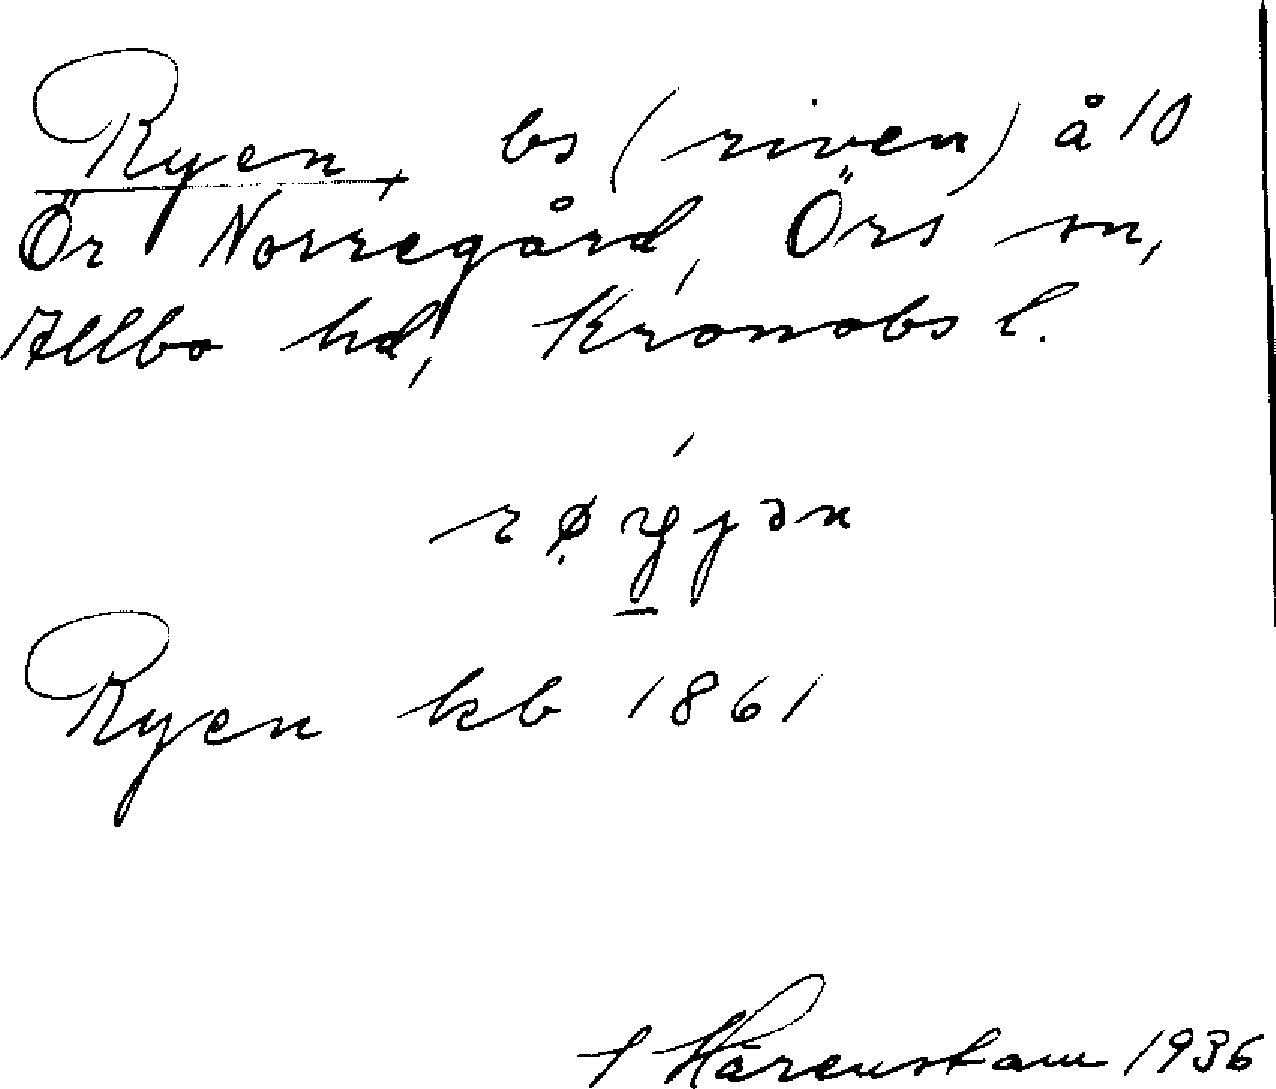 Ryen, bs (riven) å 10
Ör Norregård, Örs sn,
Allbo hd, Kronobs l.
Ryen kb 1861
Härenstam 1936